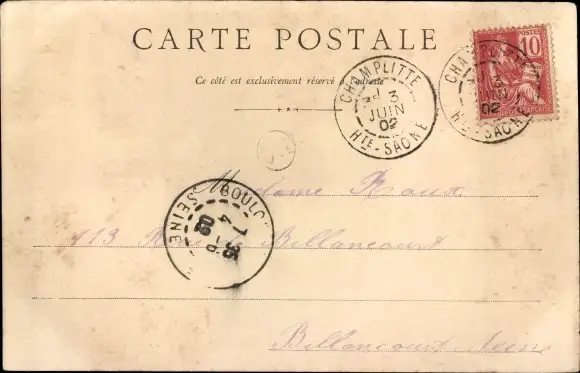 CARTE POSTALE
Ce côté est exclusivement réservé à l'adresse
CHAMPLITTE
3
JUIN
02
HTE-SAÔNE
CHAMPLITTE
3
02
HTE-SAÔNE
10
POSTES
BOULO
4
02
SEINE
Madame Roux
113 Billancourt
Billancourt Seine